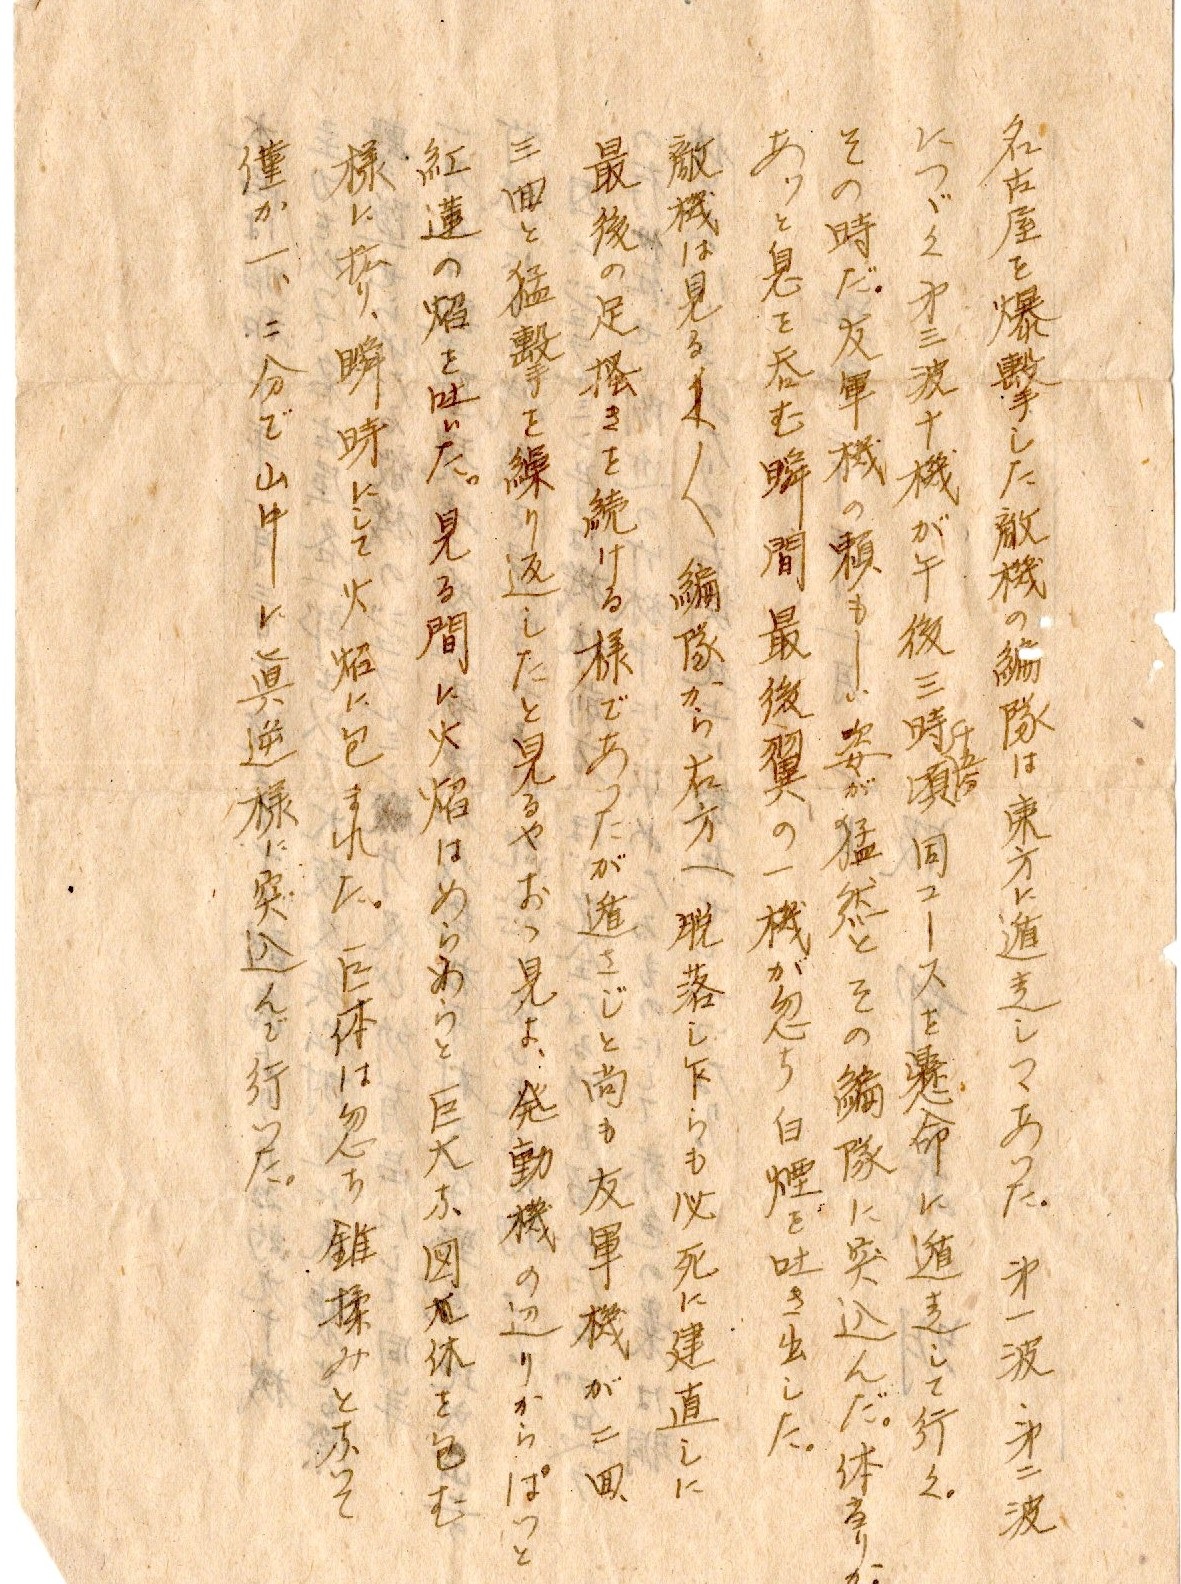 名古屋を爆撃した敵機の編隊は東方に遁走しつゝあった。才一波才二波
につゞく才三波十機が午後三時頃同コースを懸命に遁走して行く。
十五分
その時だ。友軍機の頼もしい姿が猛然とその編隊に突込んだ。体当りか。
あッと息を呑む瞬間最後翼の一機が忽ち白煙を吐き出した。
敵機は見る〳〵編隊から右方へ脱落し乍らも必死に建直しに
最後の足掻きを続ける様であったが遁さじと尚も友軍機が二回、
三回と猛撃を繰り返したと見るやおっ見よ、発動機の辺りからぱっと
紅蓮の焔を吐いた。見る間に火焔はめらめらと巨大な図体を包む
様に拡り、瞬時にして火焔に包まれた。巨体は忽ち錐揉みとなって
僅か一、二分で山中に真逆様に突込んで行いった。